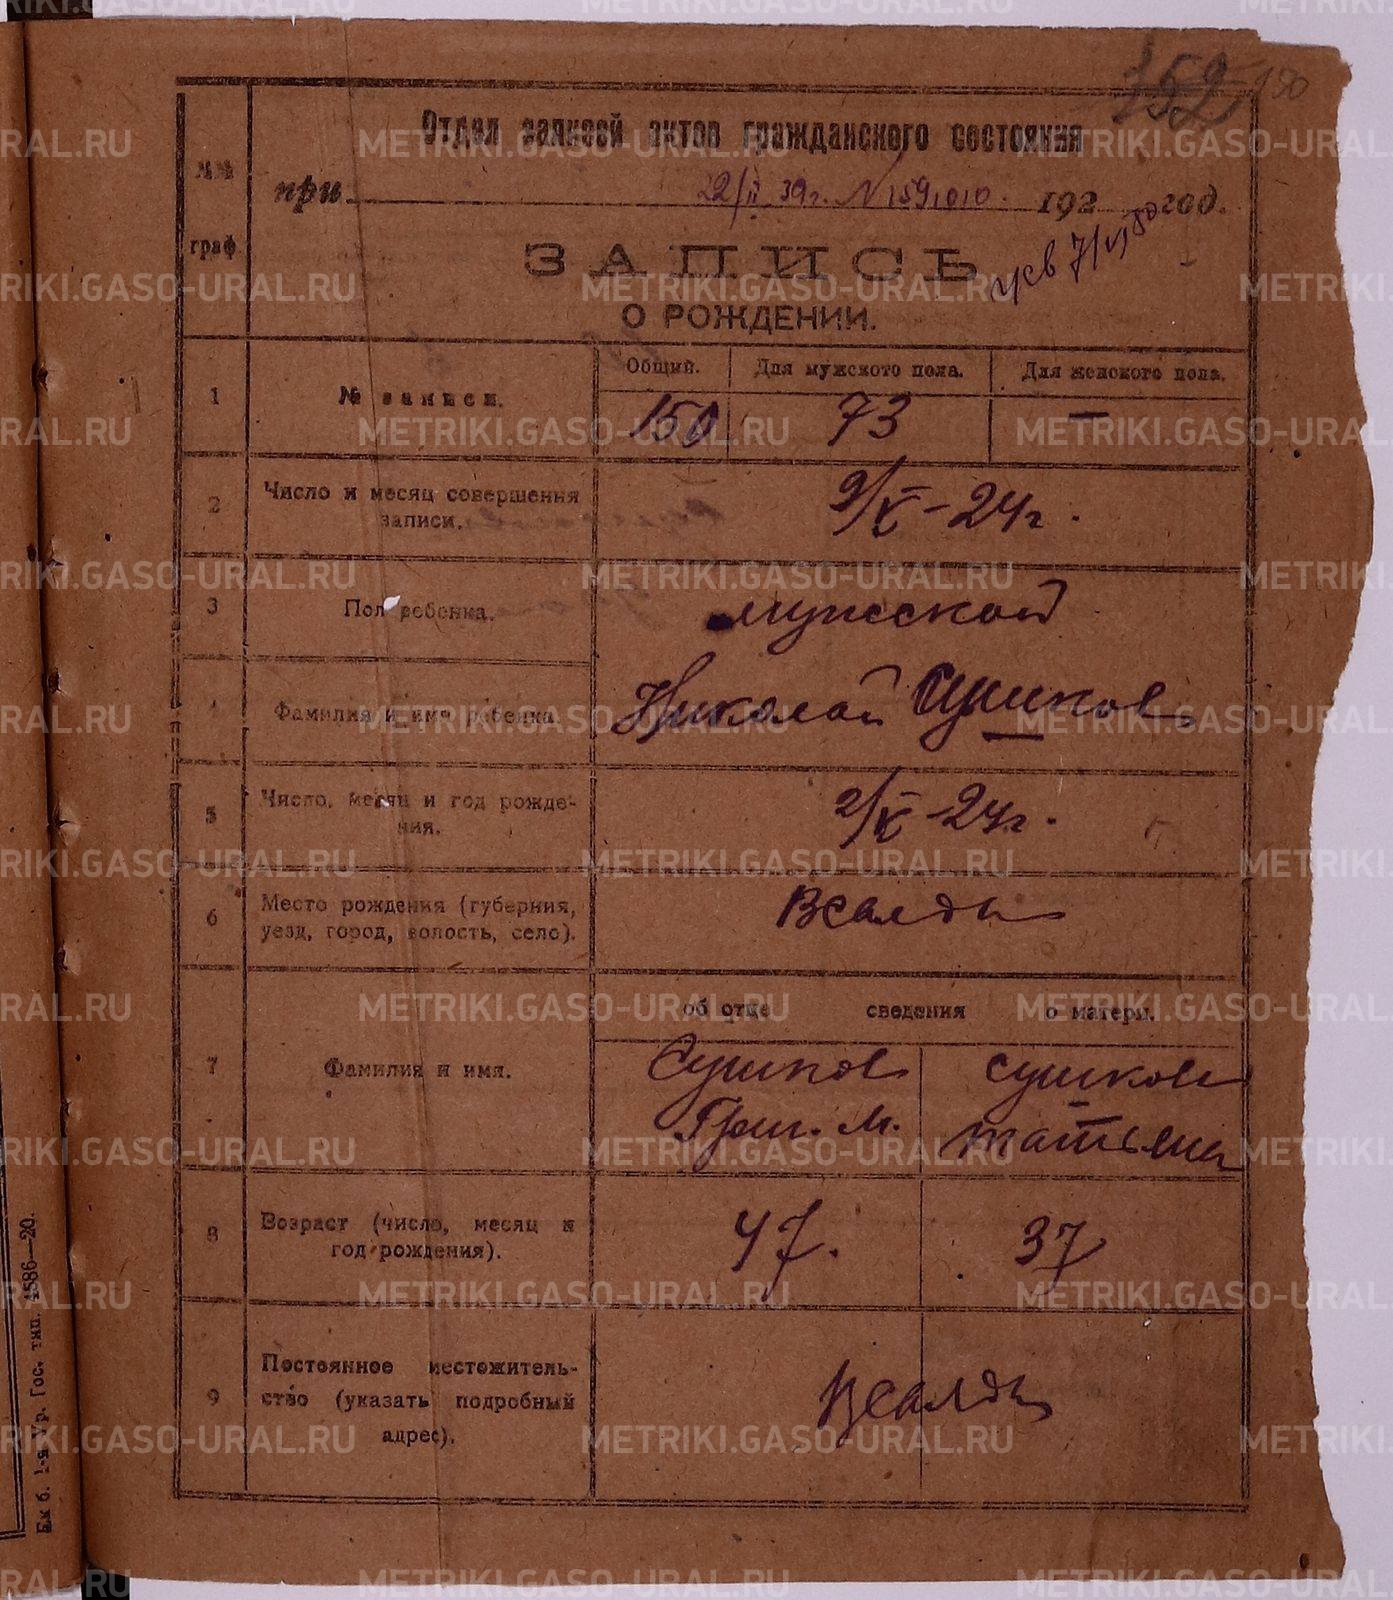 152 150
Отдел записей актов гражданского состояния
№№ граф
при 22/II 39г. N 159,010. 192 год.
ЗАПИСЬ
О РОЖДЕНИИ.
Общий. Для мужского пола. Для женского пола.
1 № записи. 150 73 —
2 Число и месяц совершения записи. 9/X - 24г.
3 Пол ребенка. мужской
Фамилия и имя ребенка. Николай Сушков
5 Число, месяц и год рожде-
ния. 2/X - 24г.
6 Место рождения (губерния,
уезд, город, волость, село). В Салды
об отце сведения о матери.
7 Фамилия и имя. Сушков Сушкова
Григ. М. Татьяна
8 Возраст (число, месяц и
год рождения). 47. 37
9 Постоянное местожитель-
ство (указать подробный
адрес). В Салды
Ек б. 1-я Ур. Гос. тип. 4586—20.
METRIKI.GASO-URAL.RU